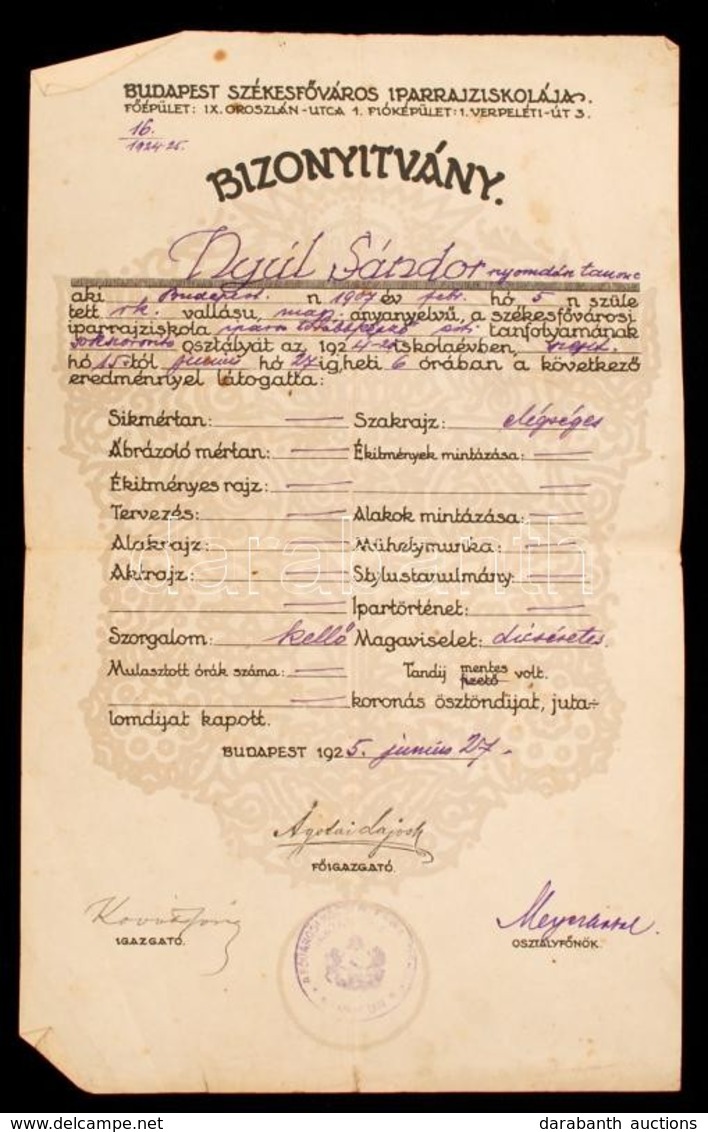 BUDAPEST SZÉKESFŐVÁROS IPARRAJZISKOLÁJA.
FŐÉPÜLET: IX. OROSZLÁN-UTCA 1. FIÓKÉPÜLET: I. VERPELÉTI-ÚT 3.
16.
1924-25.
BIZONYITVÁNY.
Nyúl Sándor nyomdász tanonc
aki Budapest. n 1907 év febr. hó 5 n szüle
tett rk. vallásu, mag. anyanyelvű, a székesfővárosi
iparrajziskola ipari továbbképző esti tanfolyamának
osztályát az 1924-25 iskolaévben, szept.
hó 15.től junius hó 27 ig, heti 6 órában a következő
eredménnyel látogatta:
Sikmértan: — Szakrajz: elégséges
Ábrázoló mértan: — Ékitmények mintázása: —
Ékitményes rajz: — —
Tervezés: — Alakok mintázása: —
Alakrajz: — Műhelymunka: —
Aktrajz: — Stylustanulmány: —
— Ipartörténet: —
Szorgalom: kellő Magaviselet: dicséretes.
Mulasztott órák száma: — Tandij mentes fizető volt.
— koronás ösztöndijat, juta-
lomdijat kapott.
BUDAPEST 1925. június 27.
Ágotai Lajos
FŐIGAZGATÓ.
IGAZGATÓ.
OSZTÁLYFŐNÖK.
darabanth
delcampe.net
darabanth auctions